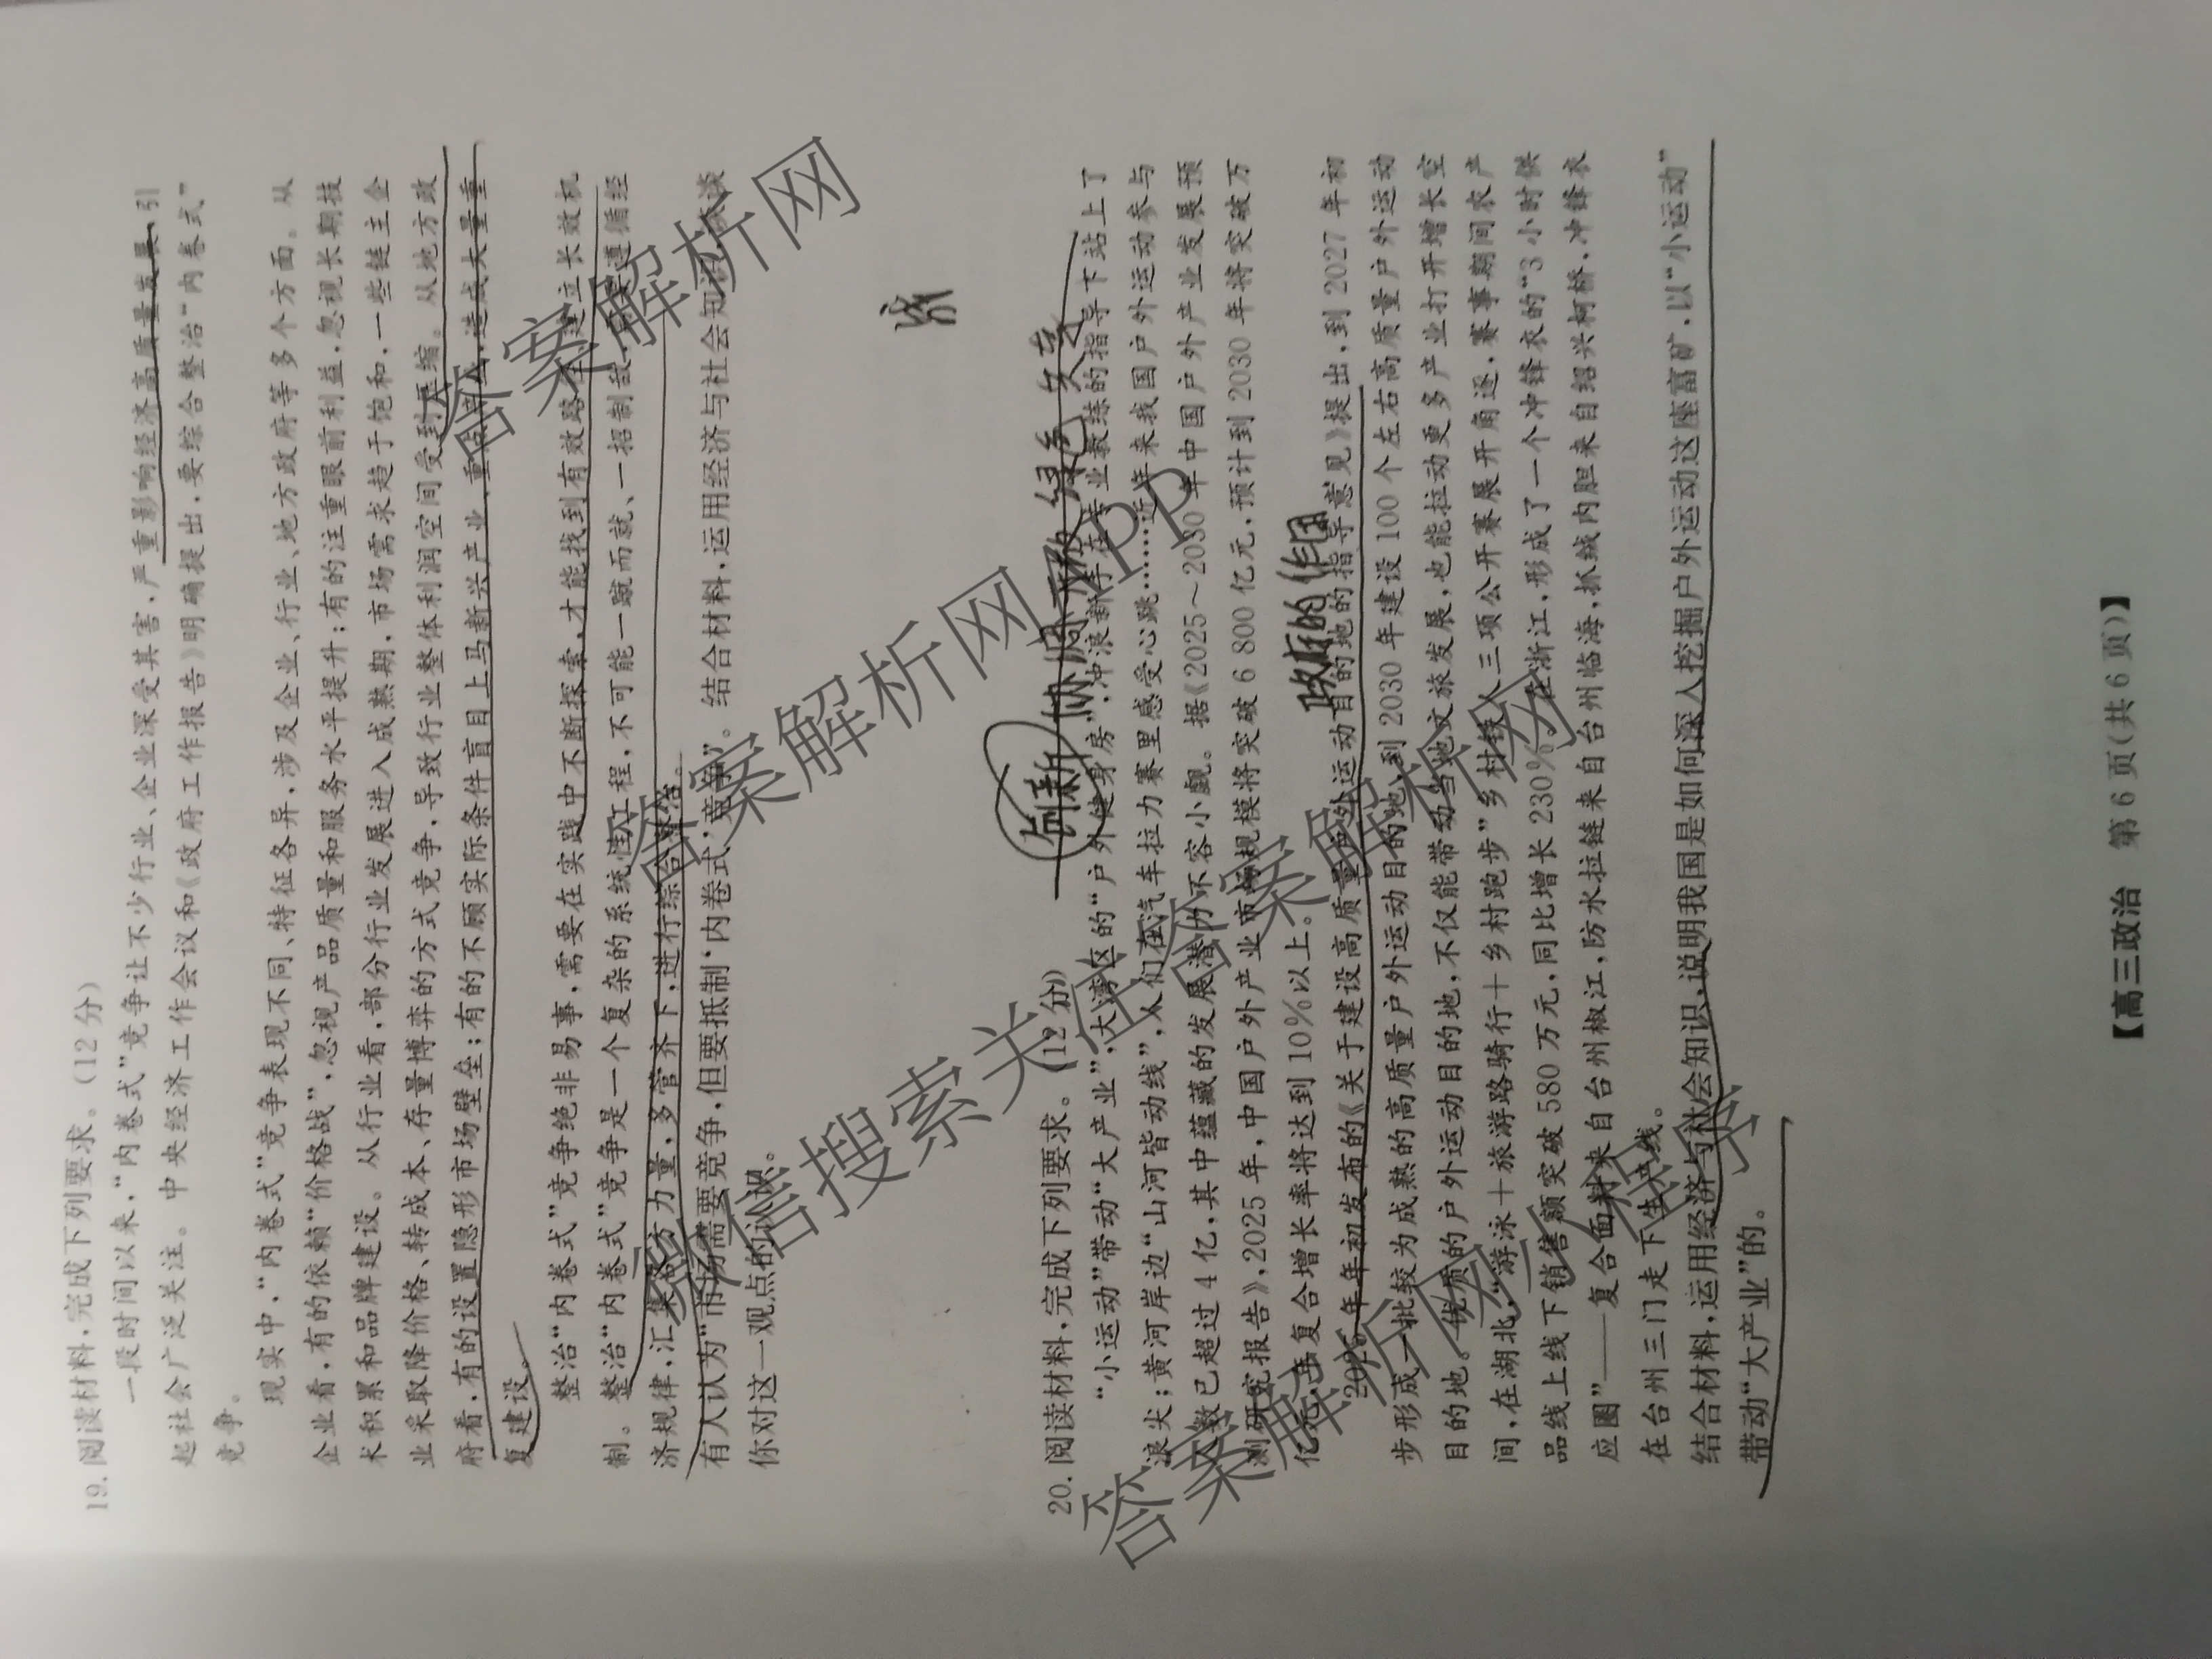 19. 阅读材料,完成下列要求。(12分)
一段时间以来,“内卷式”竞争让不少行业、企业深受其害,严重影响经济高质量发展,引
起社会广泛关注。中央经济工作会议和《政府工作报告》明确提出,要综合整治“内卷式”
竞争。
现实中,“内卷式”竞争表现不同、特征各异,涉及企业、行业、地方政府等多个方面。从
企业看,有的依赖“价格战”,忽视产品质量和服务水平提升;有的注重眼前利益,忽视长期技
术积累和品牌建设。从行业看,部分行业发展进入成熟期,市场需求趋于饱和,一些链主企
业采取降价格、转成本、存量博弈的方式竞争,导致行业整体利润空间受到压缩。从地方政
府看,有的设置隐形市场壁垒;有的不顾实际条件盲目上马新兴产业、重点产业,造成大量重
复建设。
整治“内卷式”竞争绝非易事,需要在实践中不断探索,才能找到有效路径,建立长效机
制。整治“内卷式”竞争是一个复杂的系统性工程,不可能一蹴而就、一招制敌,需要遵循经
济规律,汇集各方力量,多管齐下,进行综合整治。
有人认为“市场需要竞争,但要抵制‘内卷式’竞争”。结合材料,运用经济与社会知识,谈谈
你对这一观点的认识。
济
创新 协调 开放 绿色 共享
20. 阅读材料,完成下列要求。(12分)
“小运动”带动“大产业”,大湾区的“户外健身房”,冲浪新手在专业教练的指导下站上了
浪尖;黄河岸边“山河皆动线”,人们在汽车拉力赛里感受心跳……近年来我国户外运动参与
人数已超过4亿,其中蕴藏的发展潜力不容小觑。据《2025~2030年中国户外产业发展预
测研究报告》,2025年,中国户外产业市场规模将突破6 800亿元,预计到2030年将突破万
亿元,年复合增长率将达到10%以上。
政府的作用
2025年年初发布的《关于建设高质量户外运动目的地的指导意见》提出,到2027年初
步形成一批较为成熟的高质量户外运动目的地,到2030年建设100个左右高质量户外运动
目的地。优质的户外运动目的地,不仅能带动当地文旅发展,也能拉动更多产业打开增长空
间,在湖北,“游泳+旅游路骑行+乡村跑步”乡村铁人三项公开赛展开角逐,赛事期间农产
品线上线下销售额突破580万元,同比增长230%;在浙江,形成了一个冲锋衣的“3小时供
应圈”——复合面料来自台州椒江,防水拉链来自台州临海,抓绒内胆来自绍兴柯桥,冲锋衣
在台州三门走下生产线。
结合材料,运用经济与社会知识,说明我国是如何深入挖掘户外运动这座富矿,以“小运动”
带动“大产业”的。
【高三政治 第6页(共6页)】
答案解析网
答案解析网APP
微信搜索关注答案解析网
答案解析网小程序